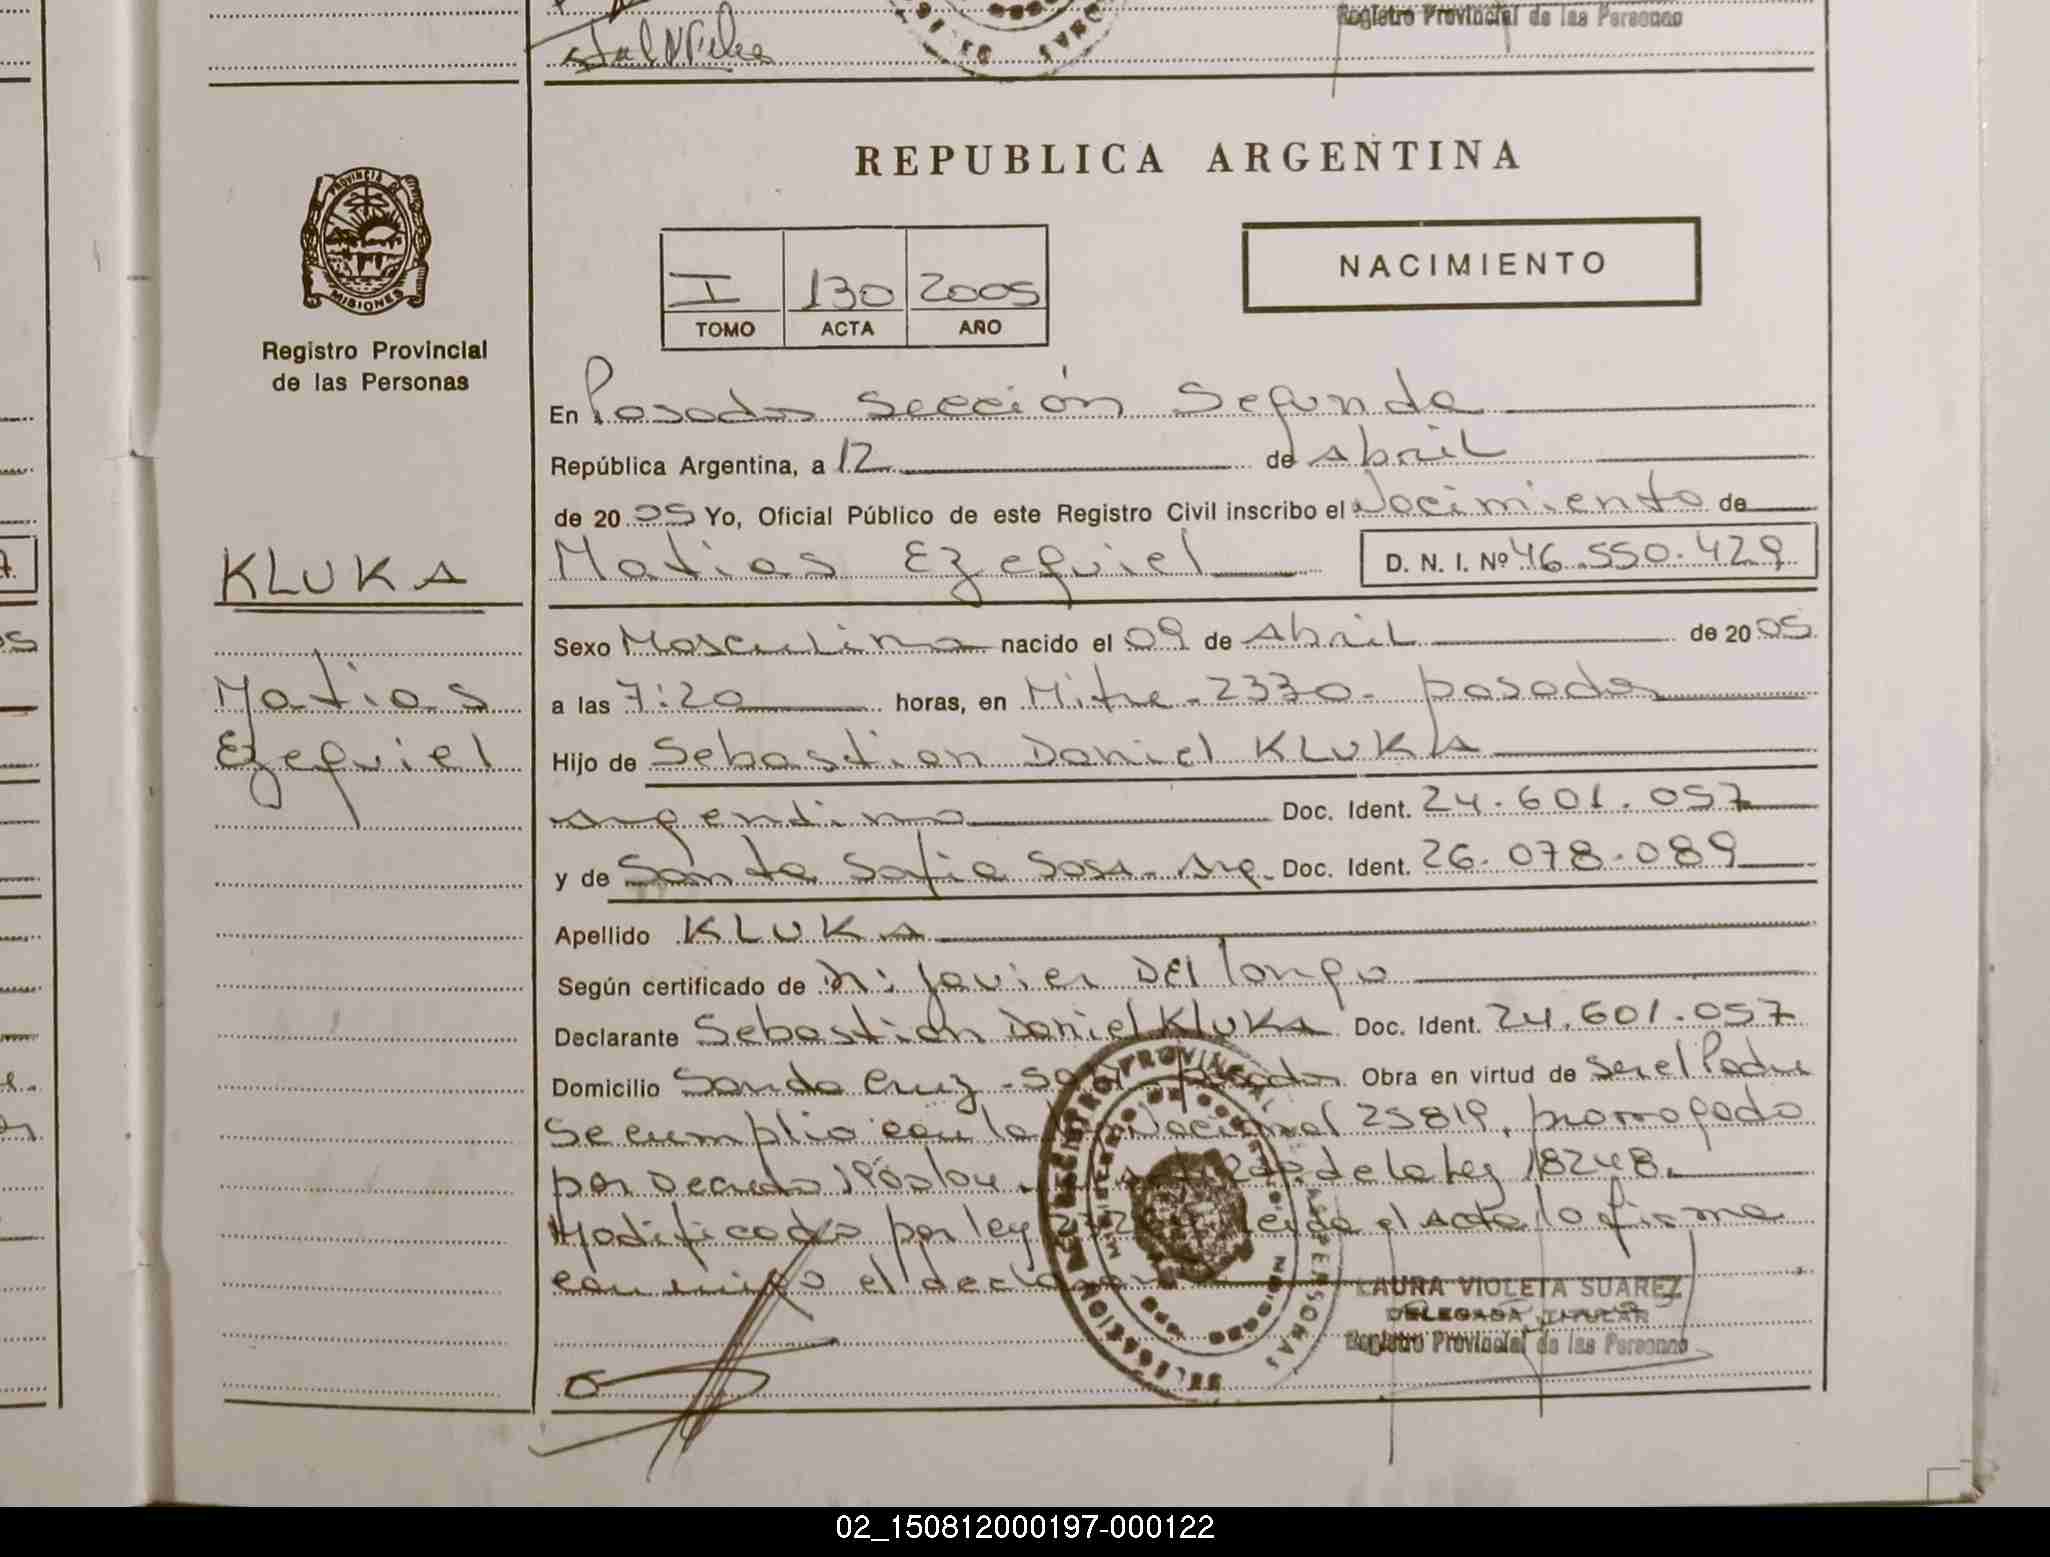 Registro Provincial de las Personas
REPUBLICA ARGENTINA
PROVINCIA DE
MISIONES
Registro Provincial
de las Personas
I 130 2005
TOMO ACTA AÑO
NACIMIENTO
En Posadas Sección Segunda
República Argentina, a 12 de Abril
de 2005 Yo, Oficial Público de este Registro Civil inscribo el Nacimiento de
KLUKA
Matias Ezequiel D. N. I. Nº 46.550.429
Sexo Masculino nacido el 09 de Abril de 2005
Matias
a las 7:20 horas, en Mitre - 2330 - posadas
Ezequiel
Hijo de Sebastian Daniel KLUKA
Argentino Doc. Ident. 24.601.057
y de Santa Sofia Sosa - Arg. Doc. Ident. 26.078.089
Apellido KLUKA
Según certificado de Dr: Javier DEl longo
Declarante Sebastian Daniel KLUKA Doc. Ident. 24.601.057
Domicilio Santa Cruz - posadas Obra en virtud de ser el Padre
Se cumplio con la Nacional 25819, prorrogado
por Decreto de la ley 18248.
Modificados por ley leida el Acta lo firma
conmigo el declarante
LAURA VIOLETA SUAREZ
DELEGADA TITULAR
Registro Provincial de las Personas
02_150812000197-000122